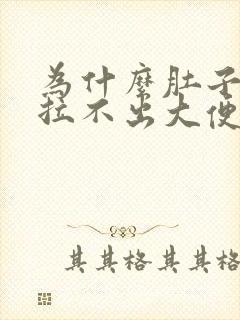 為什麼肚子
拉不出大便
其其格其其格